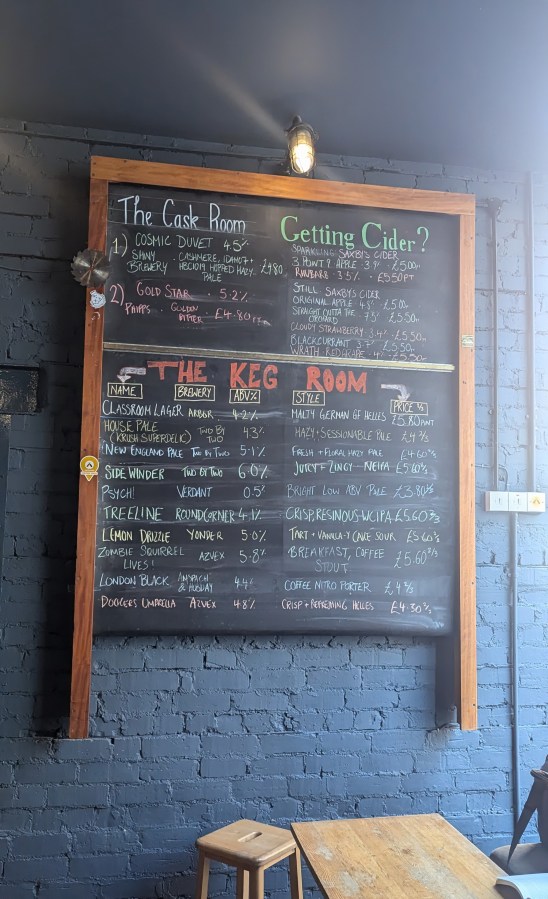 The Cask Room
1) COSMIC DUVET 4.5%
SHINY BREWERY . CASHMERE, IDAHO7 +
HBC1019 HOPPED HAZY PALE £4.80
2) GOLD STAR 5.2%
PHIPPS . GOLDEN BITTER £4.80
Getting Cider?
SPARKLING SAXBY'S CIDER
3. POINT 9 APPLE 3.9% £5.50
RHUBARB 3.5% £5.50PT
STILL SAXBYS CIDER
ORIGINAL APPLE £5.00
STRAIGHT OUTTA THE ORCHARD 7.5% £5.50
CLOUDY STRAWBERRY 3.4% £5.50
BLACKCURRANT £5.50
WRATH RED GRAPE £5.50
THE KEG ROOM
NAME BREWERY ABV% STYLE PRICE
CLASSROOM LAGER ARBOR 4.2% MALTY GERMAN GF HELLES £5.80 PINT
HOUSE PALE (KRUSH SUPERDELIC) TWO BY TWO 4.3% HAZY + SESSIONABLE PALE
NEW ENGLAND PALE TWO BY TWO 5.1% FRESH + FLORAL HAZY PALE £4.60
SIDEWINDER TWO BY TWO 6.0% JUICY + ZINGY NEIPA £5.60
PSYCH! VERDANT 0.5% BRIGHT LOW ABV PALE £3.80
TREELINE ROUNDCORNER 4.1% CRISP, RESINOUS WCIPA £5.60 2/3
LEMON DRIZZLE YONDER 5.0% TART + VANILLA-Y CAKE SOUR £5.60
ZOMBIE SQUIRREL LIVES! AZVEX 5.8% BREAKFAST, COFFEE STOUT £5.60 2/3
LONDON BLACK ANSPACH & HOBDAY 4.4% COFFEE NITRO PORTER
DODGERS UMBRELLA AZVEX 4.8% CRISP + REFRESHING HELLES £4.30 2/3